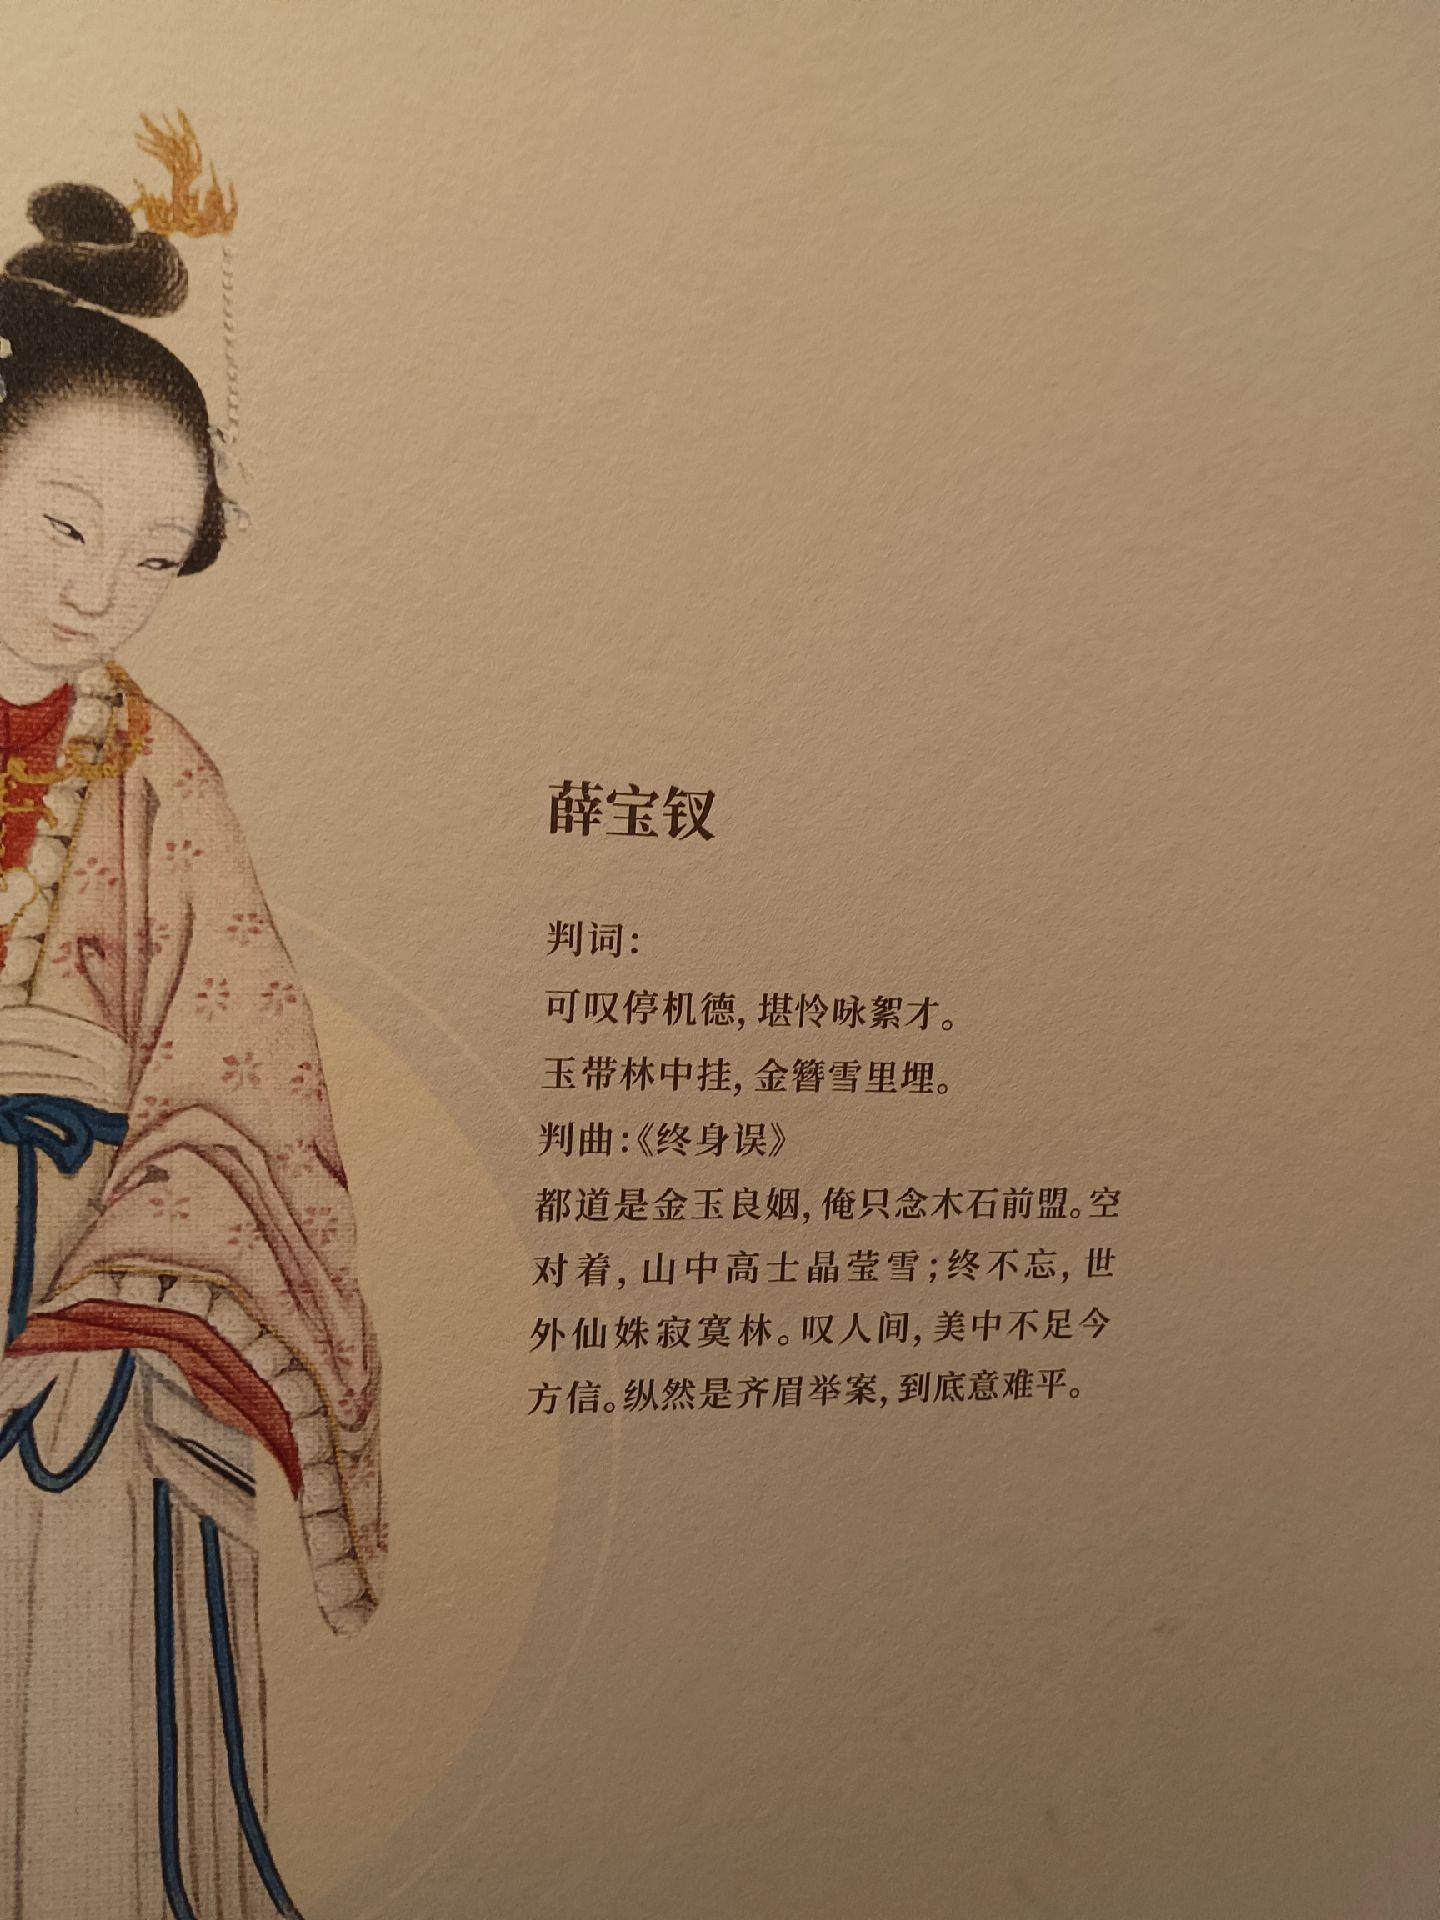 薛宝钗
判词：
可叹停机德，堪怜咏絮才。
玉带林中挂，金簪雪里埋。
判曲：《终身误》
都道是金玉良姻，俺只念木石前盟。空
对着，山中高士晶莹雪；终不忘，世
外仙姝寂寞林。叹人间，美中不足今
方信。纵然是齐眉举案，到底意难平。